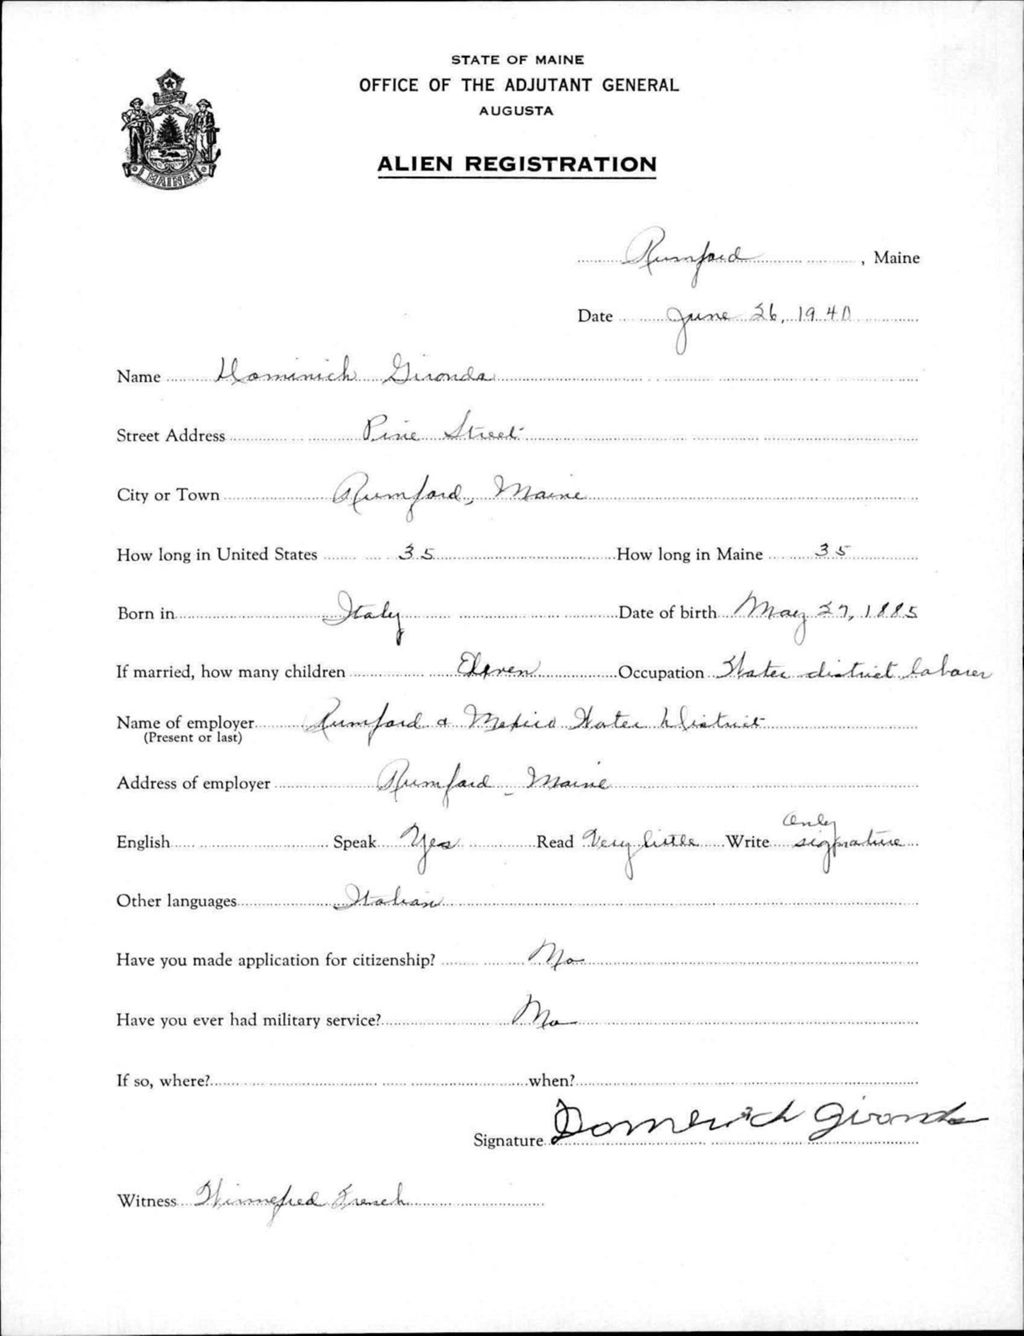 STATE OF MAINE
OFFICE OF THE ADJUTANT GENERAL
AUGUSTA
ALIEN REGISTRATION
MAINE
Rumford, Maine
Date June 26, 1940
Name Dominich Gironda
Street Address Pine Street
City or Town Rumford, Maine
How long in United States 35 How long in Maine 35
Born in Italy Date of birth May 27, 1885
If married, how many children Eleven Occupation Water district laborer
Name of employer Rumford & Mexico Water District
(Present or last)
Address of employer Rumford - Maine
English Speak Yes Read Very little Write Only signature
Other languages Italian
Have you made application for citizenship? No
Have you ever had military service? No
If so, where? when?
Signature Domenich Gironda
Witness Winnefred French